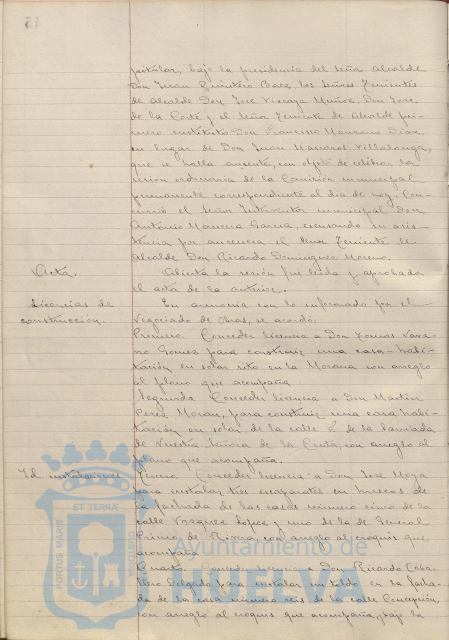 15
pitular, bajo la presidencia del señor Alcalde
Don Juan Quintero Baez, los señores Tenientes
de Alcalde Don José Vizcaya Muñoz, Don José
de la Corte y el señor Teniente de Alcalde pri-
mero sustituto Don Francisco Manzano Díaz,
en lugar de Don Juan Villalonga,
que se halla ausente, con objeto de celebrar la
sesión ordinaria de la Comisión municipal
permanente correspondiente al día de hoy. Con-
currió el señor Interventor municipal Don
Antonio García, excusando su asis-
tencia por ausencia el señor Teniente de
Alcalde Don Ricardo Dominguez Moreno.
Acta.
Abierta la sesión fué leída y aprobada
el acta de la anterior.
Licencias de
construcción.
En armonía con lo informado por el
Negociado de Obras, se acordó:
Primero. Conceder licencia a Don Tomas Nava-
rro Gomez para construir una casa-habi-
tación en solar sito en la Morana con arreglo
al plano que acompaña.
Segundo. Conceder licencia a Don Martin
Perez Moran, para construir una casa habi-
tación en solar de la calle de la barriada
de Nuestra Señora de la Cinta, con arreglo al
plano que acompaña.
Id instalaciones
Tercero. Conceder licencia a Don José Moya
para instalar tres escaparates en huecos de
la fachada de las casas número cinco de la
calle Vazquez Lopez y uno de la de General
Primo de Rivera, con arreglo al croquis que
acompaña.
Cuarto. Conceder licencia a Don Ricardo Caba-
llero Delgado para instalar un toldo en la facha-
da de la casa número seis de la calle Concepción,
con arreglo al croquis que acompaña, bajo la
PORTUS MARIS
ET TERRÆ
Ayuntamiento de
HUELVA